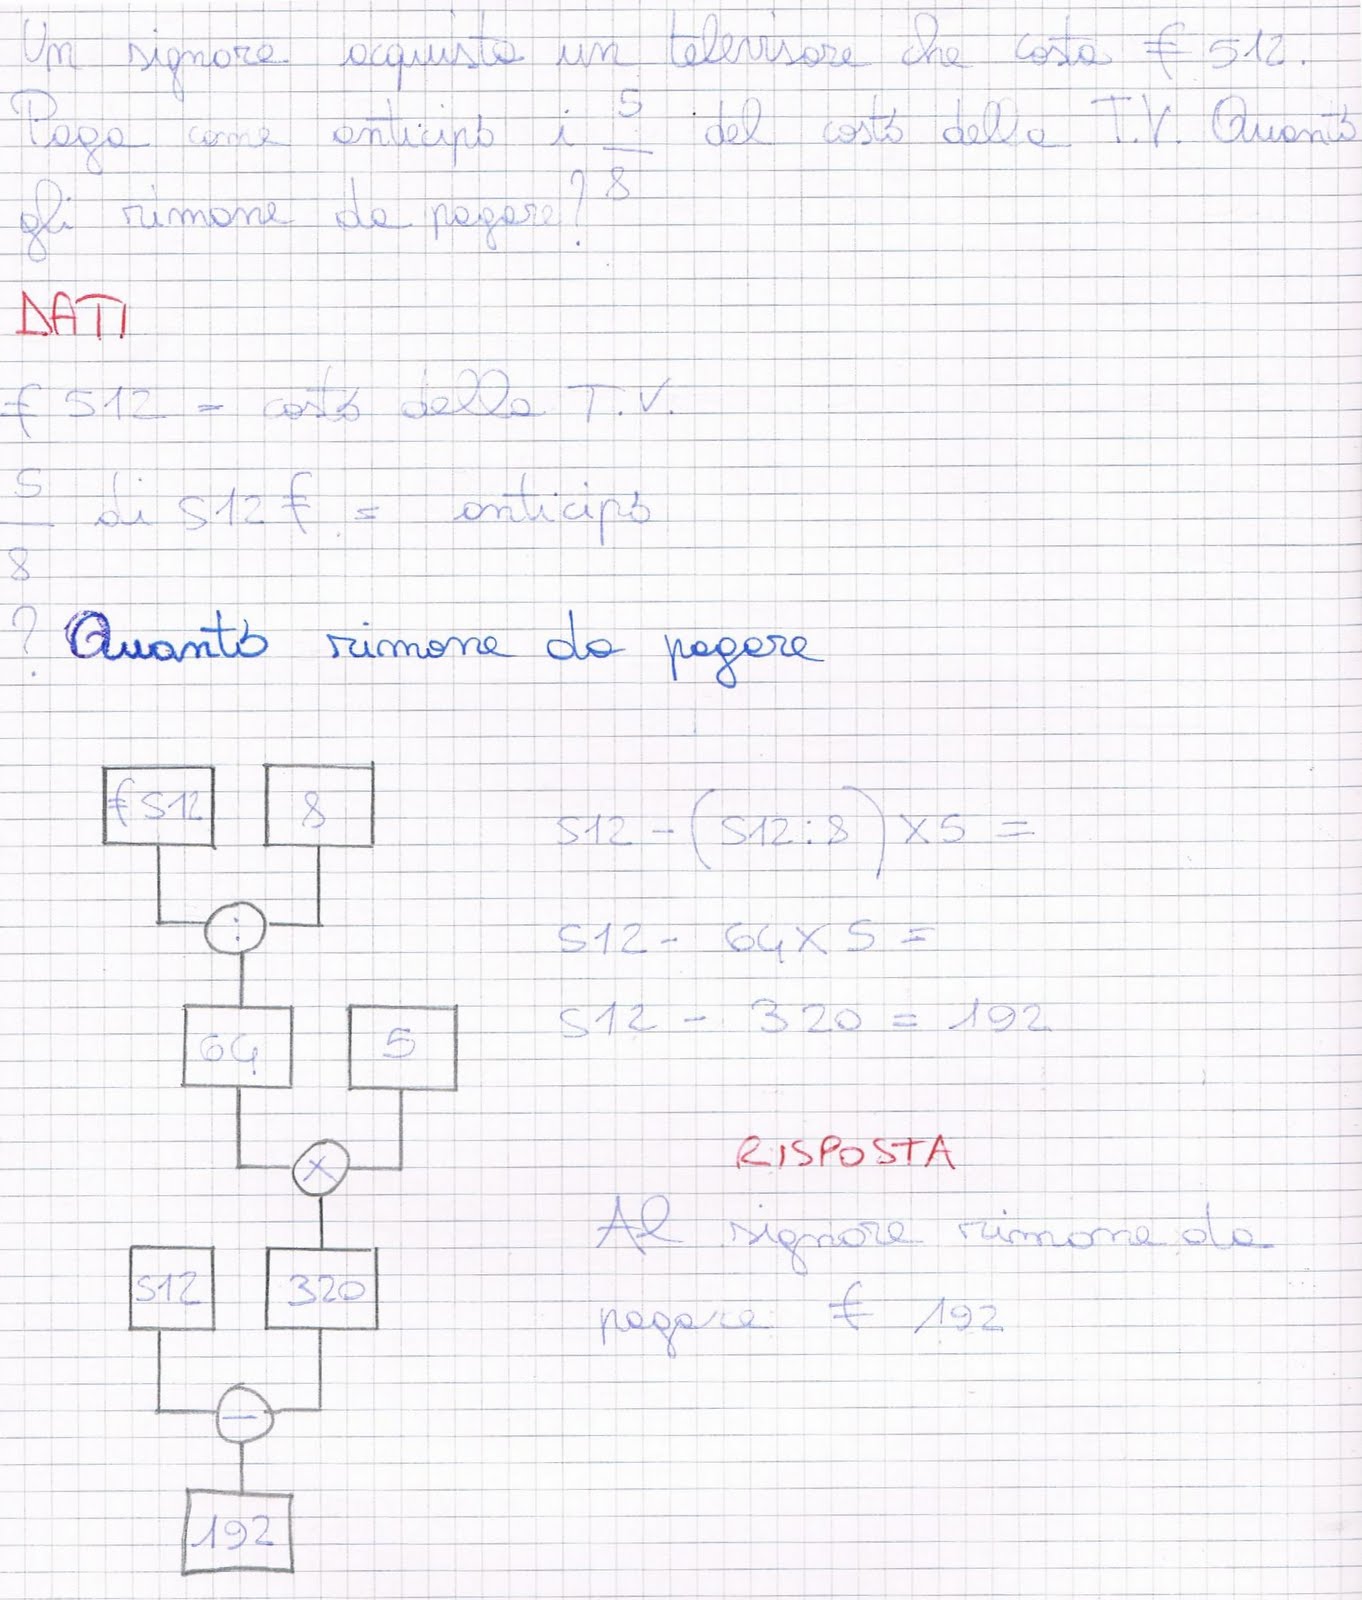 Un signore acquista un televisore che costa € 512.
Paga come anticipo i 5/8 del costo della T.V. Quanto
gli rimane da pagare?
DATI
€ 512 = costo della T.V.
5/8 di 512 € = anticipo
? Quanto rimane da pagare
€ 512 8
:
64 5
×
512 320
−
192
512 - (512:8) × 5 =
512 - 64 × 5 =
512 - 320 = 192
RISPOSTA
Al signore rimane da
pagare € 192